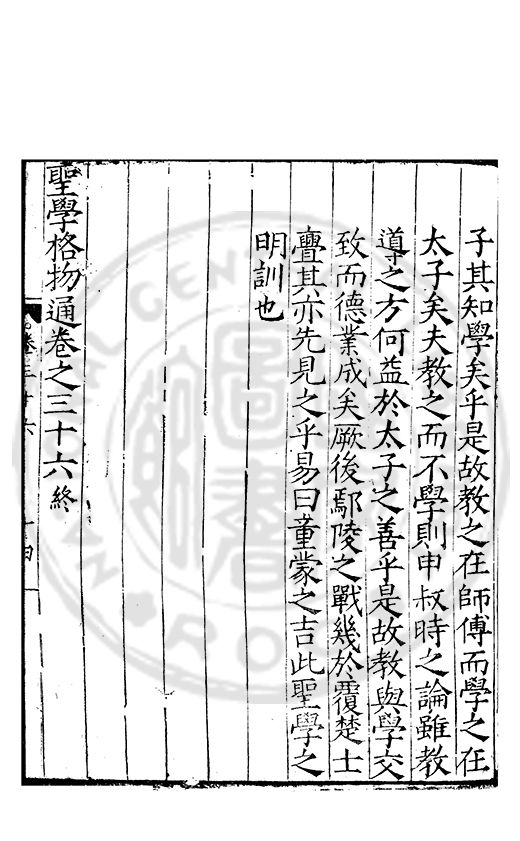 子其知學矣乎是故教之在師傅而學之在
太子矣夫教之而不學則申叔時之論雖教
導之方何益於太子之善乎是故教與學交
致而德業成矣厥後鄢陵之戰幾於覆楚士
亹其亦先見之乎易曰童蒙之吉此聖學之
明訓也
聖學格物通卷之三十六終
卷三十六